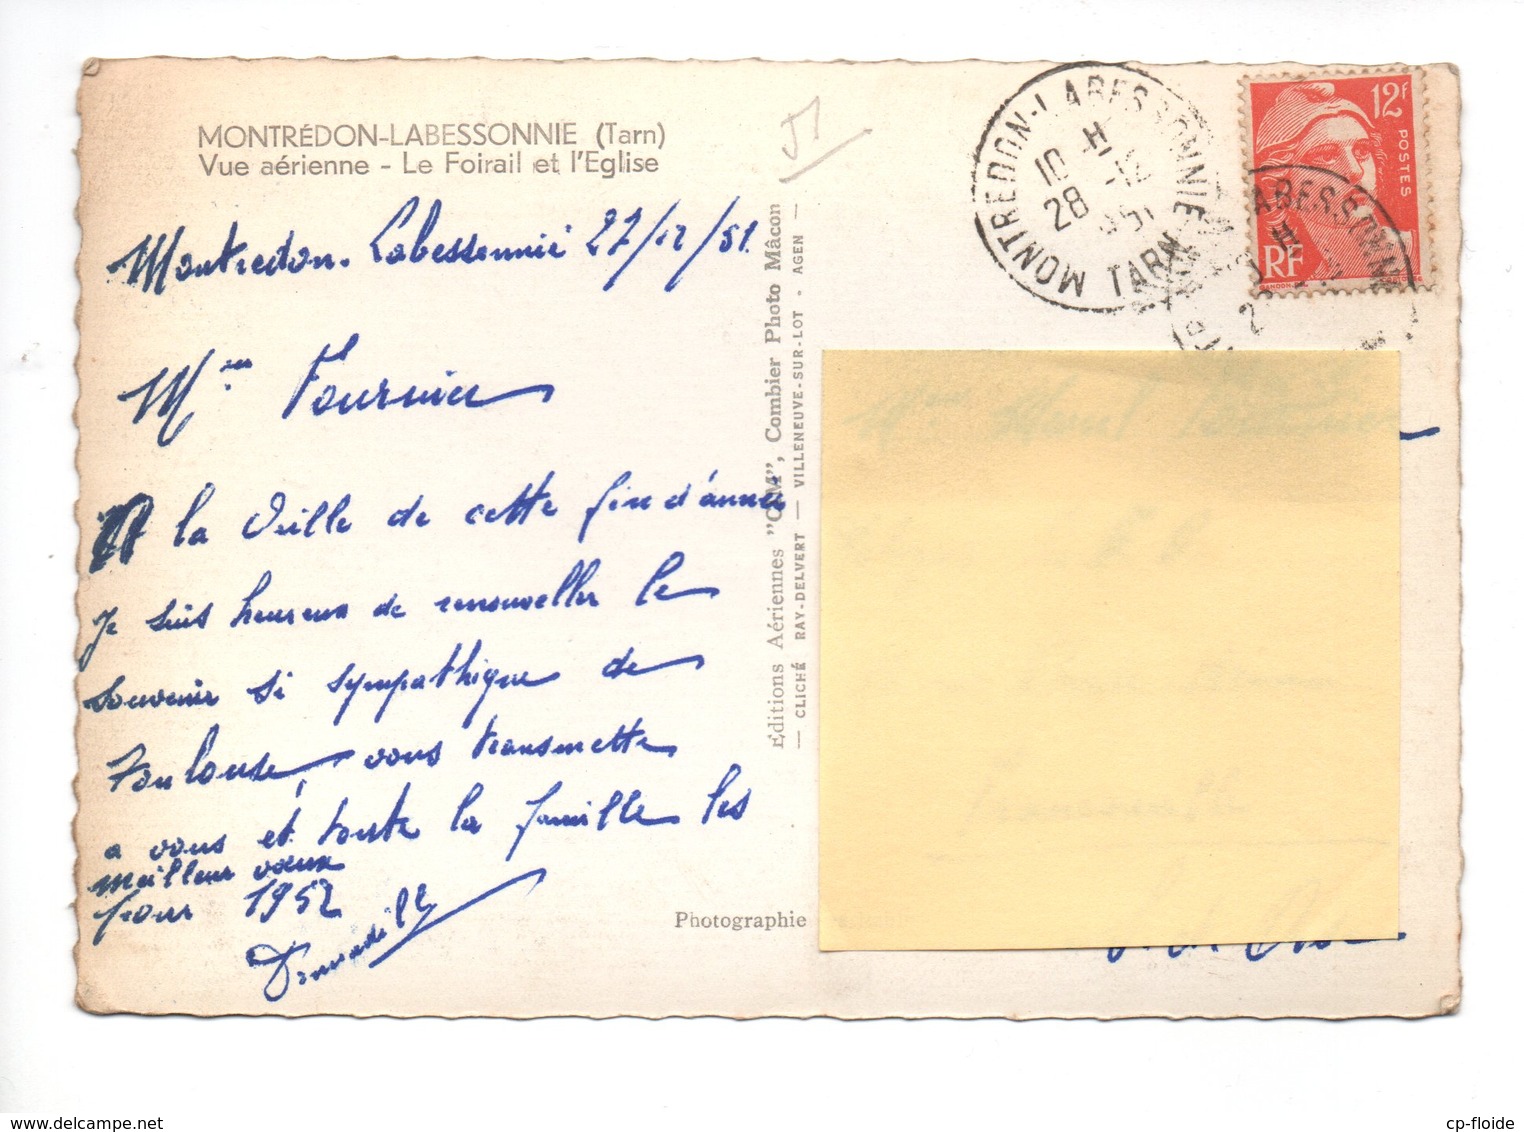 MONTRÉDON-LABESSONNIE (Tarn)
Vue aérienne - Le Foirail et l'Eglise
51
Montredon-Labessonnié 27/12/51
Mme Fournier
A la veille de cette fin d'année
je suis heureux de renouveller le
souvenir si sympathique de
Toulouse, vous transmette
a vous et toute la famille les
meilleur vœux
pour 1952
Editions Aériennes "CIM", Combier Photo Mâcon
— CLICHÉ RAY-DELVERT — VILLENEUVE-SUR-LOT - AGEN —
Photographie
MONTREDON-LABESSONNIE
10 H
28 -12
1951
TARN
12f
POSTES
RF
LABESSONNIE
www.delcampe.net
cp-floide